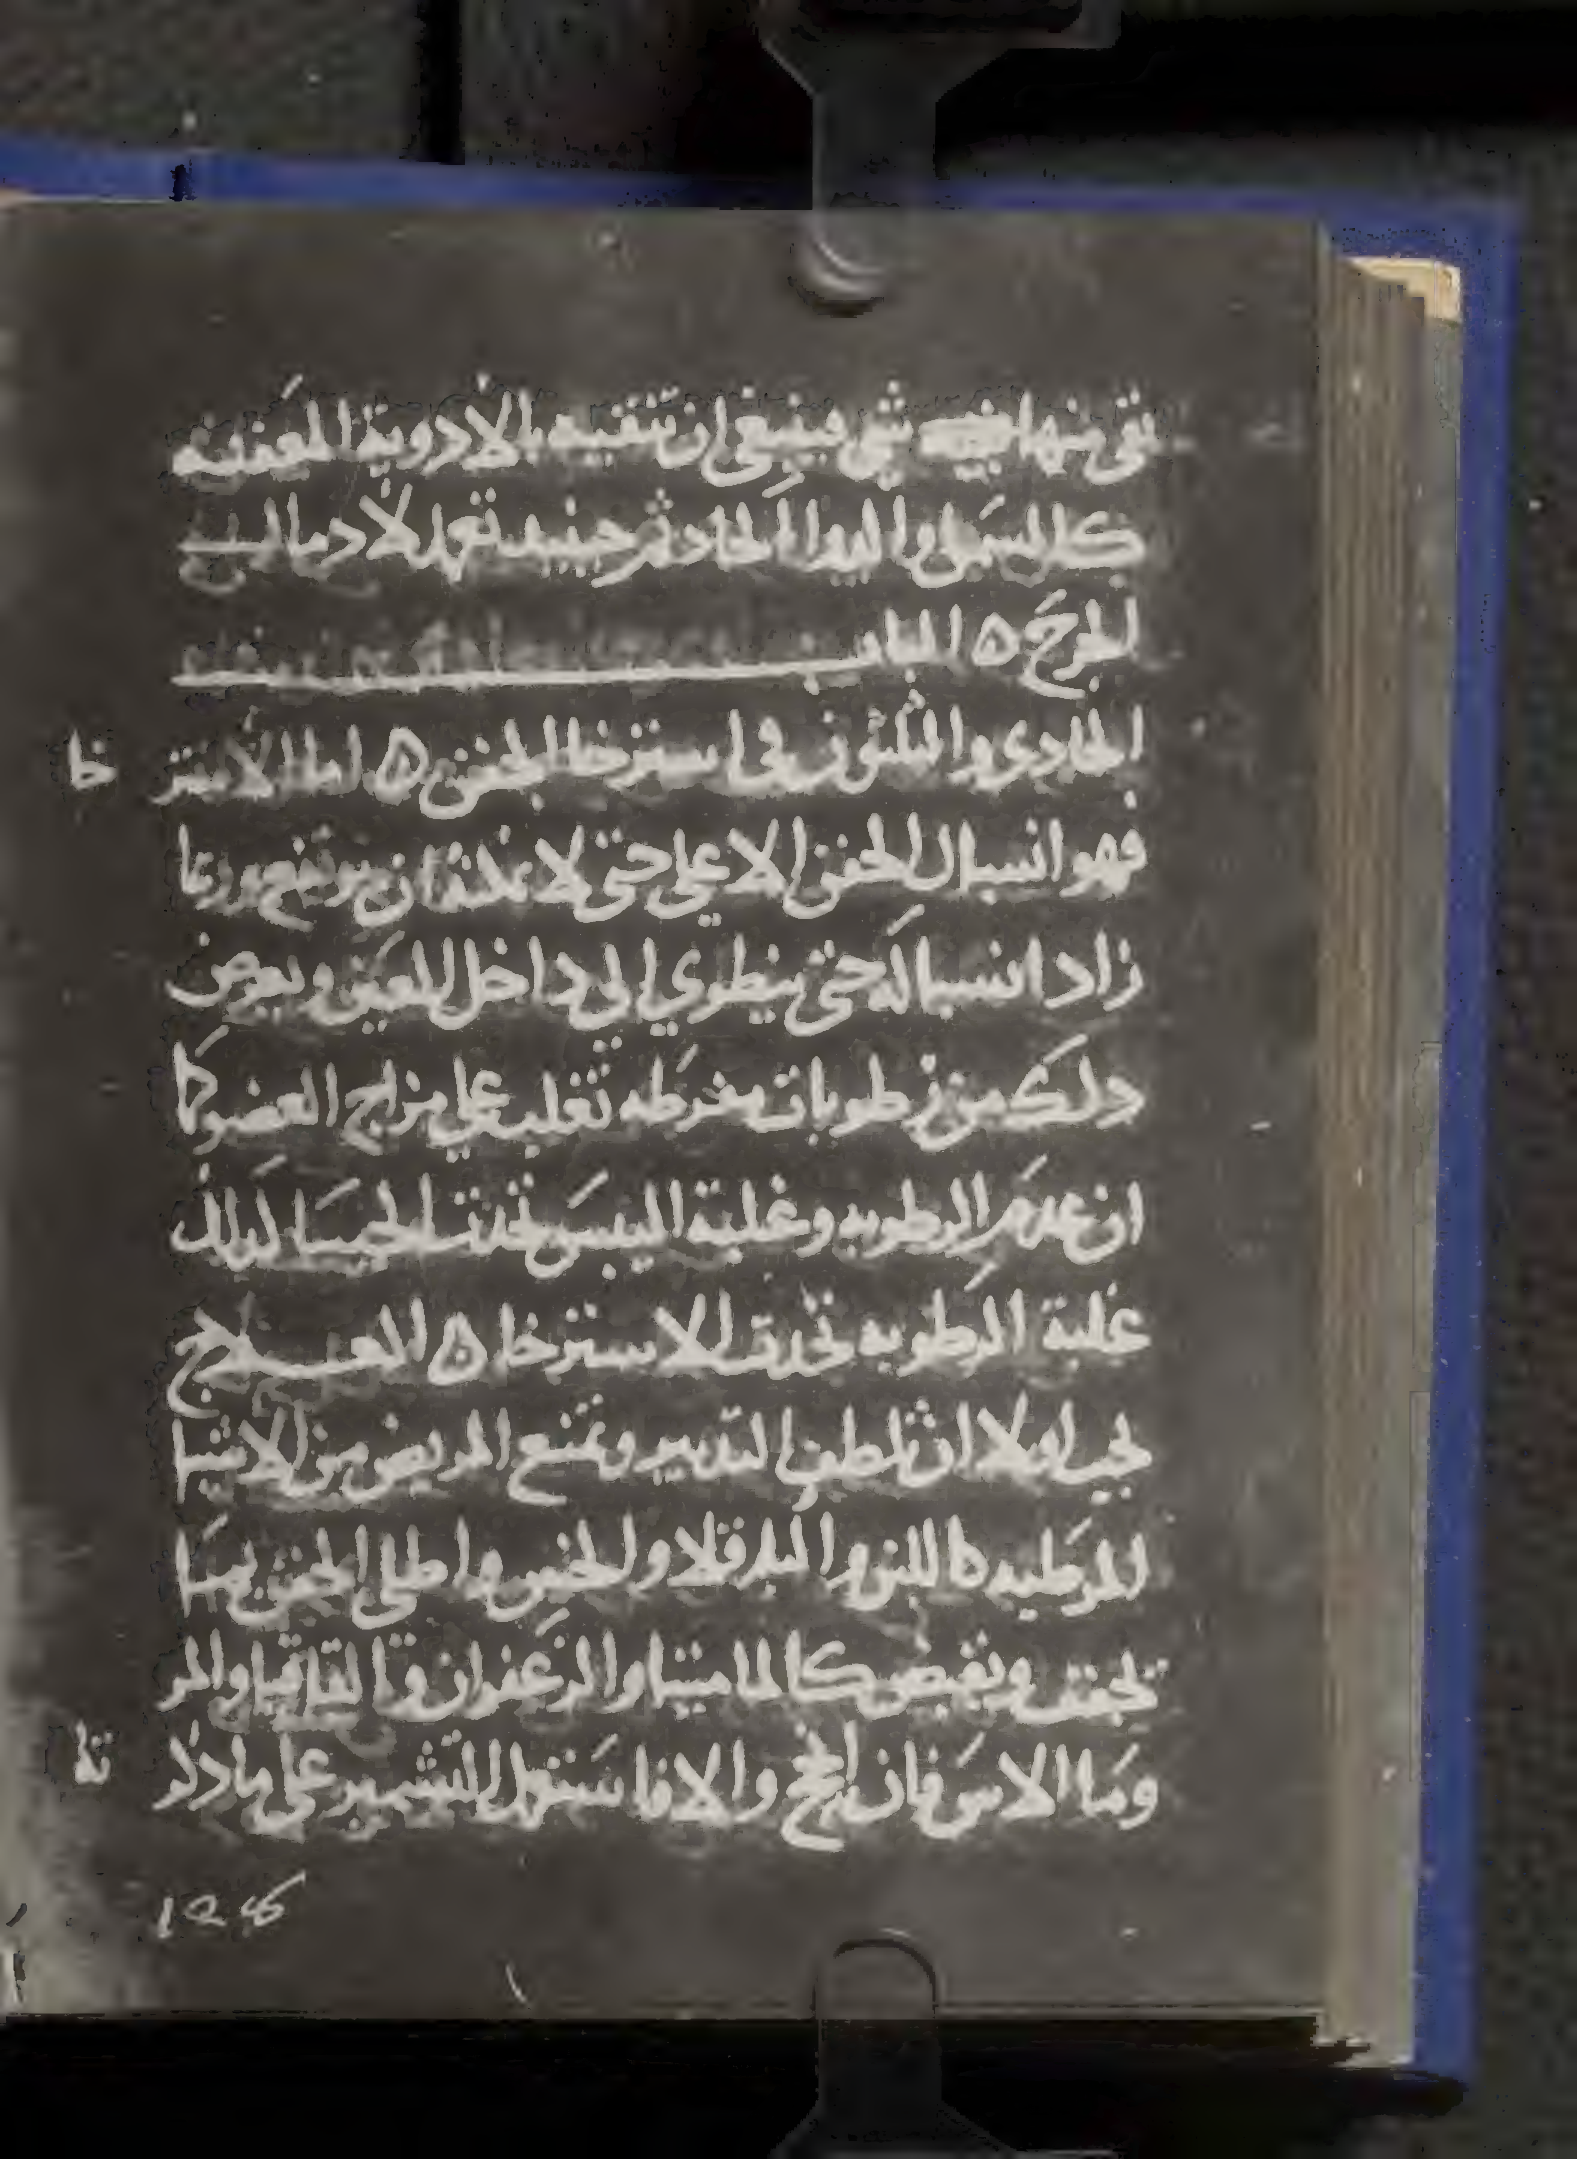 بقى منها شي فينبغي ان تنقيه بالادوية المعفنه
كالسمن والدوا الحاد ثم حينيد تعهد لادمال
الجرح ه الباب
الحادي والثلثون في استرخا الجفن ه اما الاستر خا
فهو انسبال الجفن الاعلى حتى لا يمكنه ان يرتفع وربما
زاد انسباله حتى ينطوي الى داخل العين ويعرض
دلك من رطوبات مفرطه تغلب على مزاج العضو كا
ان عدم الرطوبه وغلبة اليبس تحدث الجسا كدلك
غلبة الرطوبه تحدث الاسترخا ه العلاج
يجب اولا ان تلطف التدبير وتمنع المريض من الاشيا
المرطبه كاللبن والباقلا والخس واطلي الجفن بما
يجفف ويقبض كالماميثا والزعفران والقاقيا والمر
وما الاس فان انجح والا فاستعمل التشمير على ما ذكر نا
126